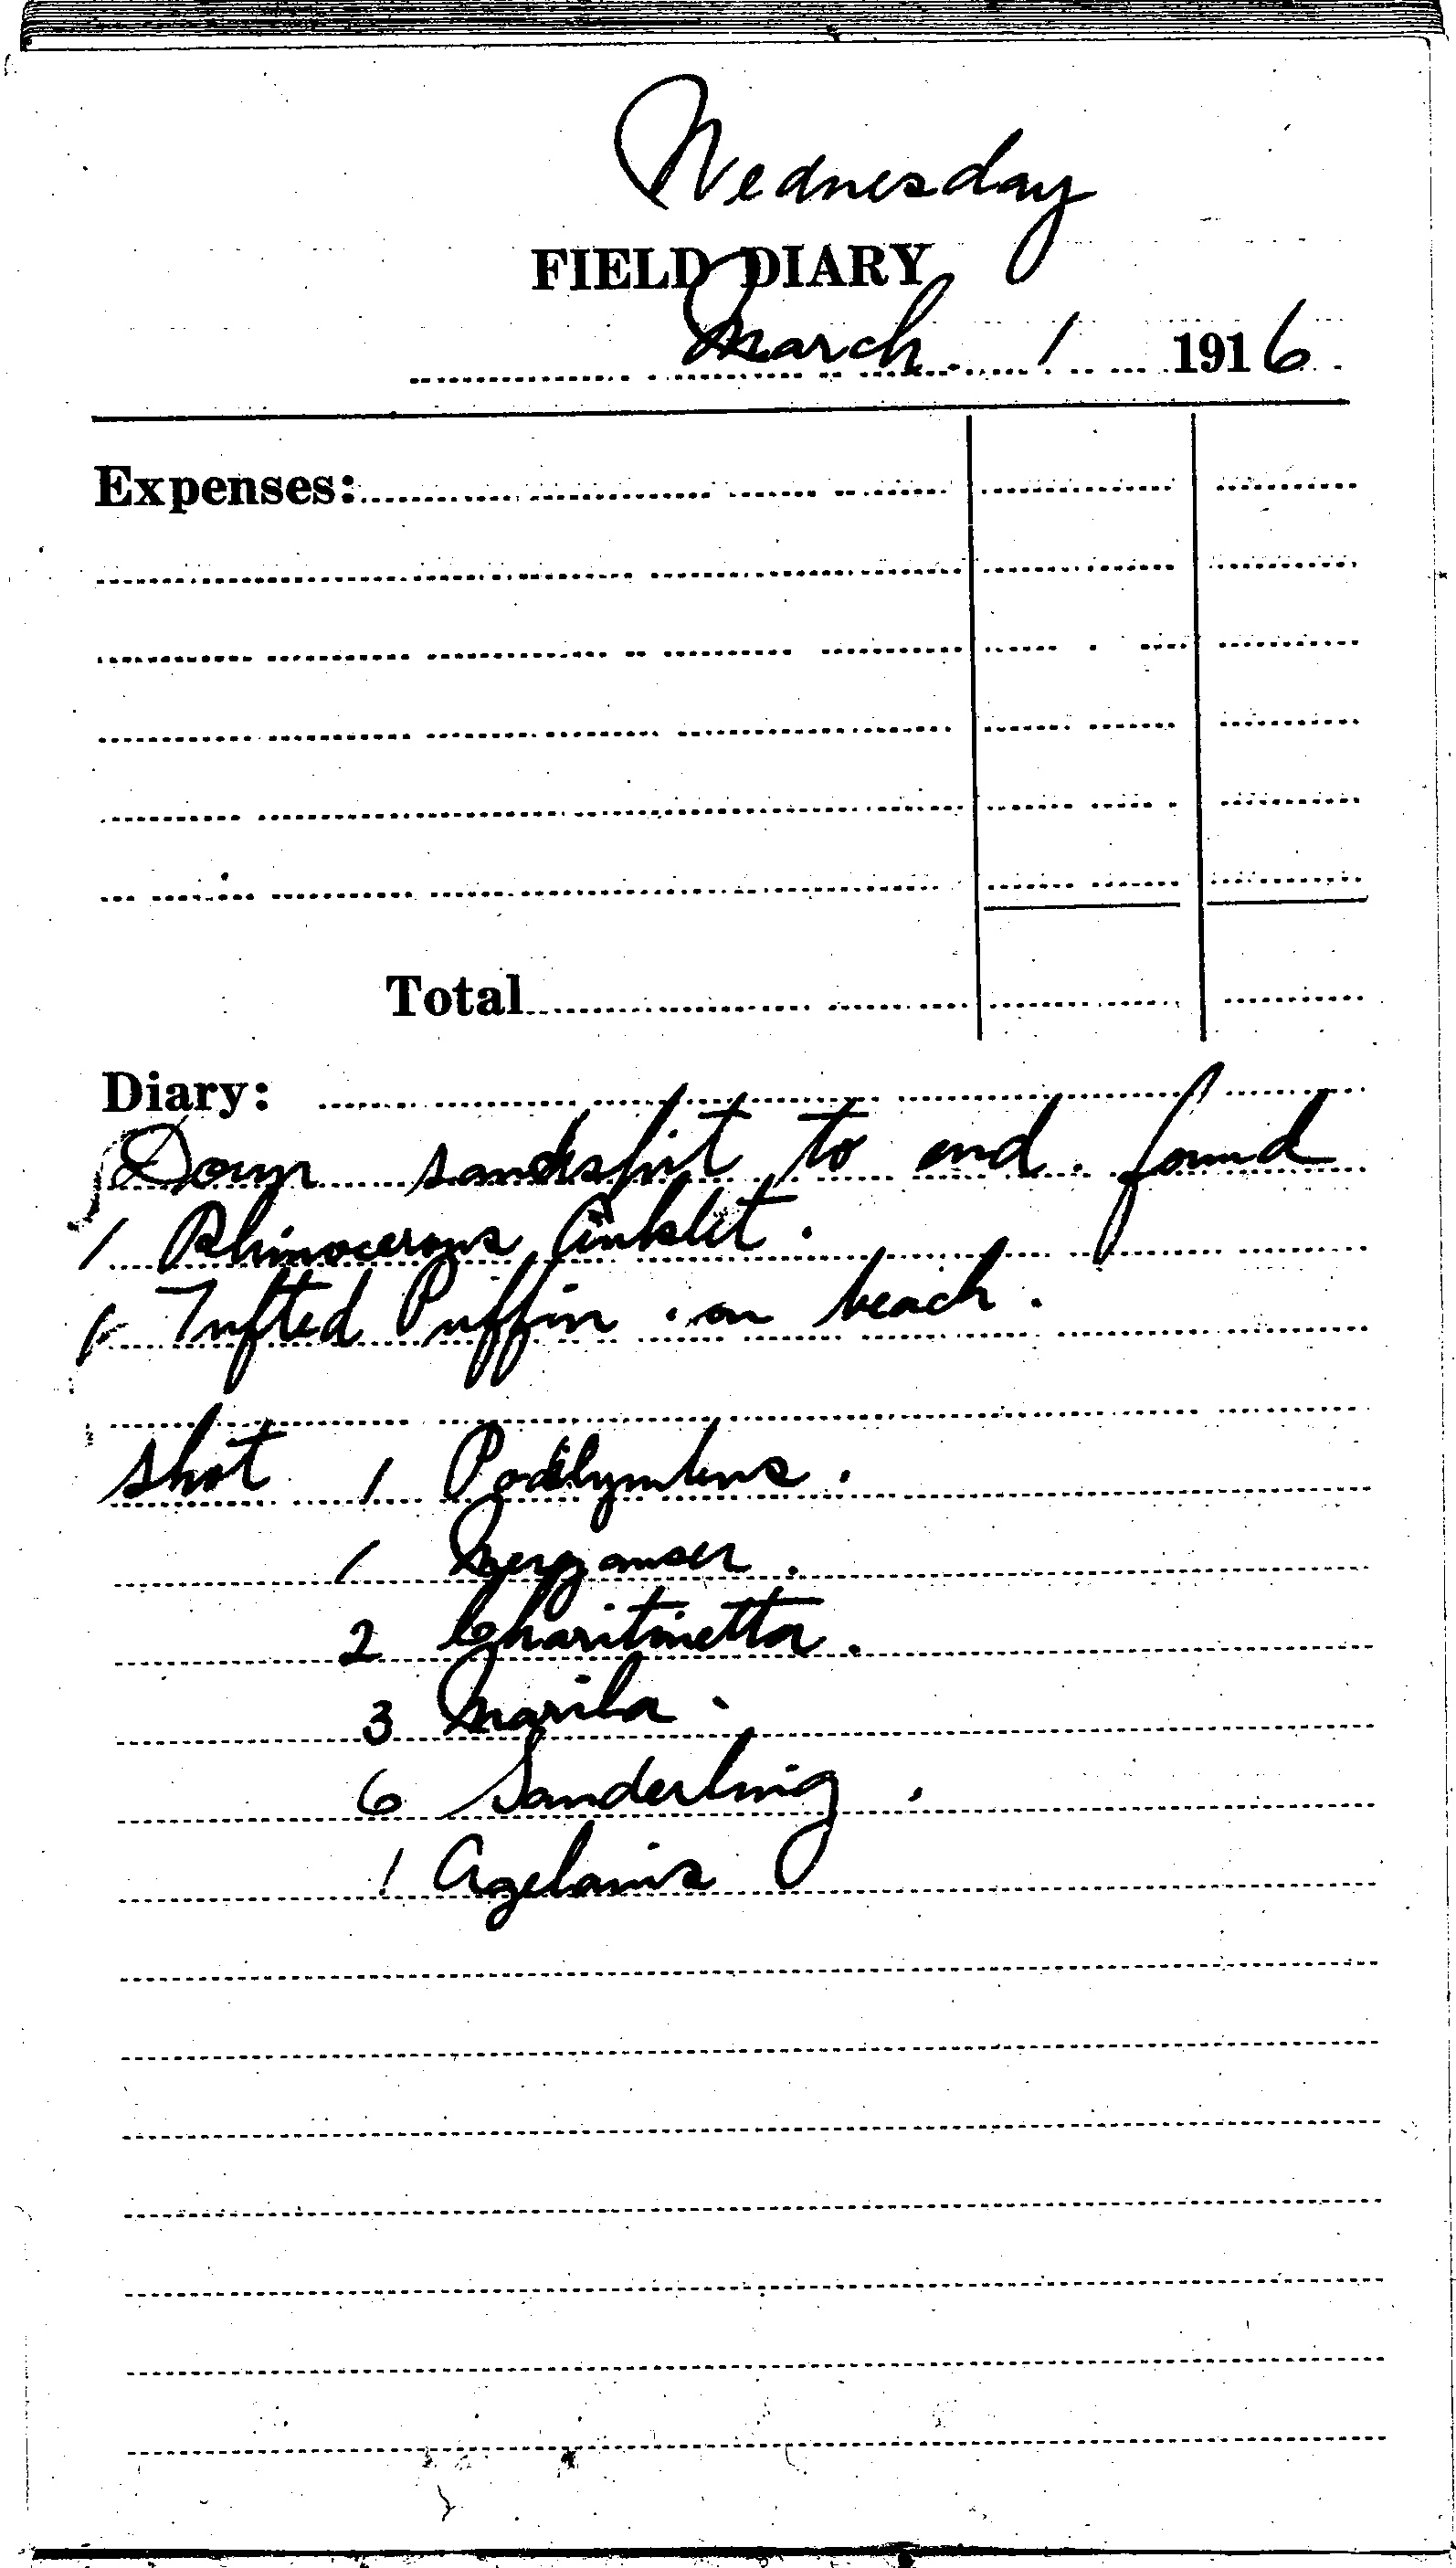 Wednesday
FIELD DIARY
March 1 1916
Expenses:
Total
Diary:
Down sandspit to end. found
1 Rhinocerous Auklet.
1 Tufted Puffin . on beach.
shot 1 Podilymbus.
1 Merganser.
2 Charitonetta.
3 Marila.
6 Sanderling.
1 Agelaius